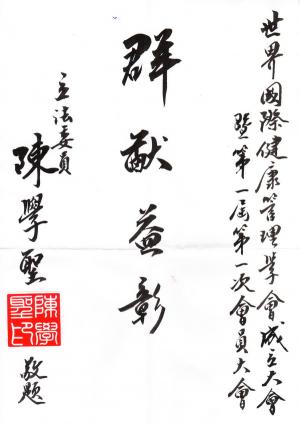 世界國際健康管理學會成立大會
暨第一屆第一次會員大會
群猷益彰
立法委員
陳學聖
敬題
陳學
聖印